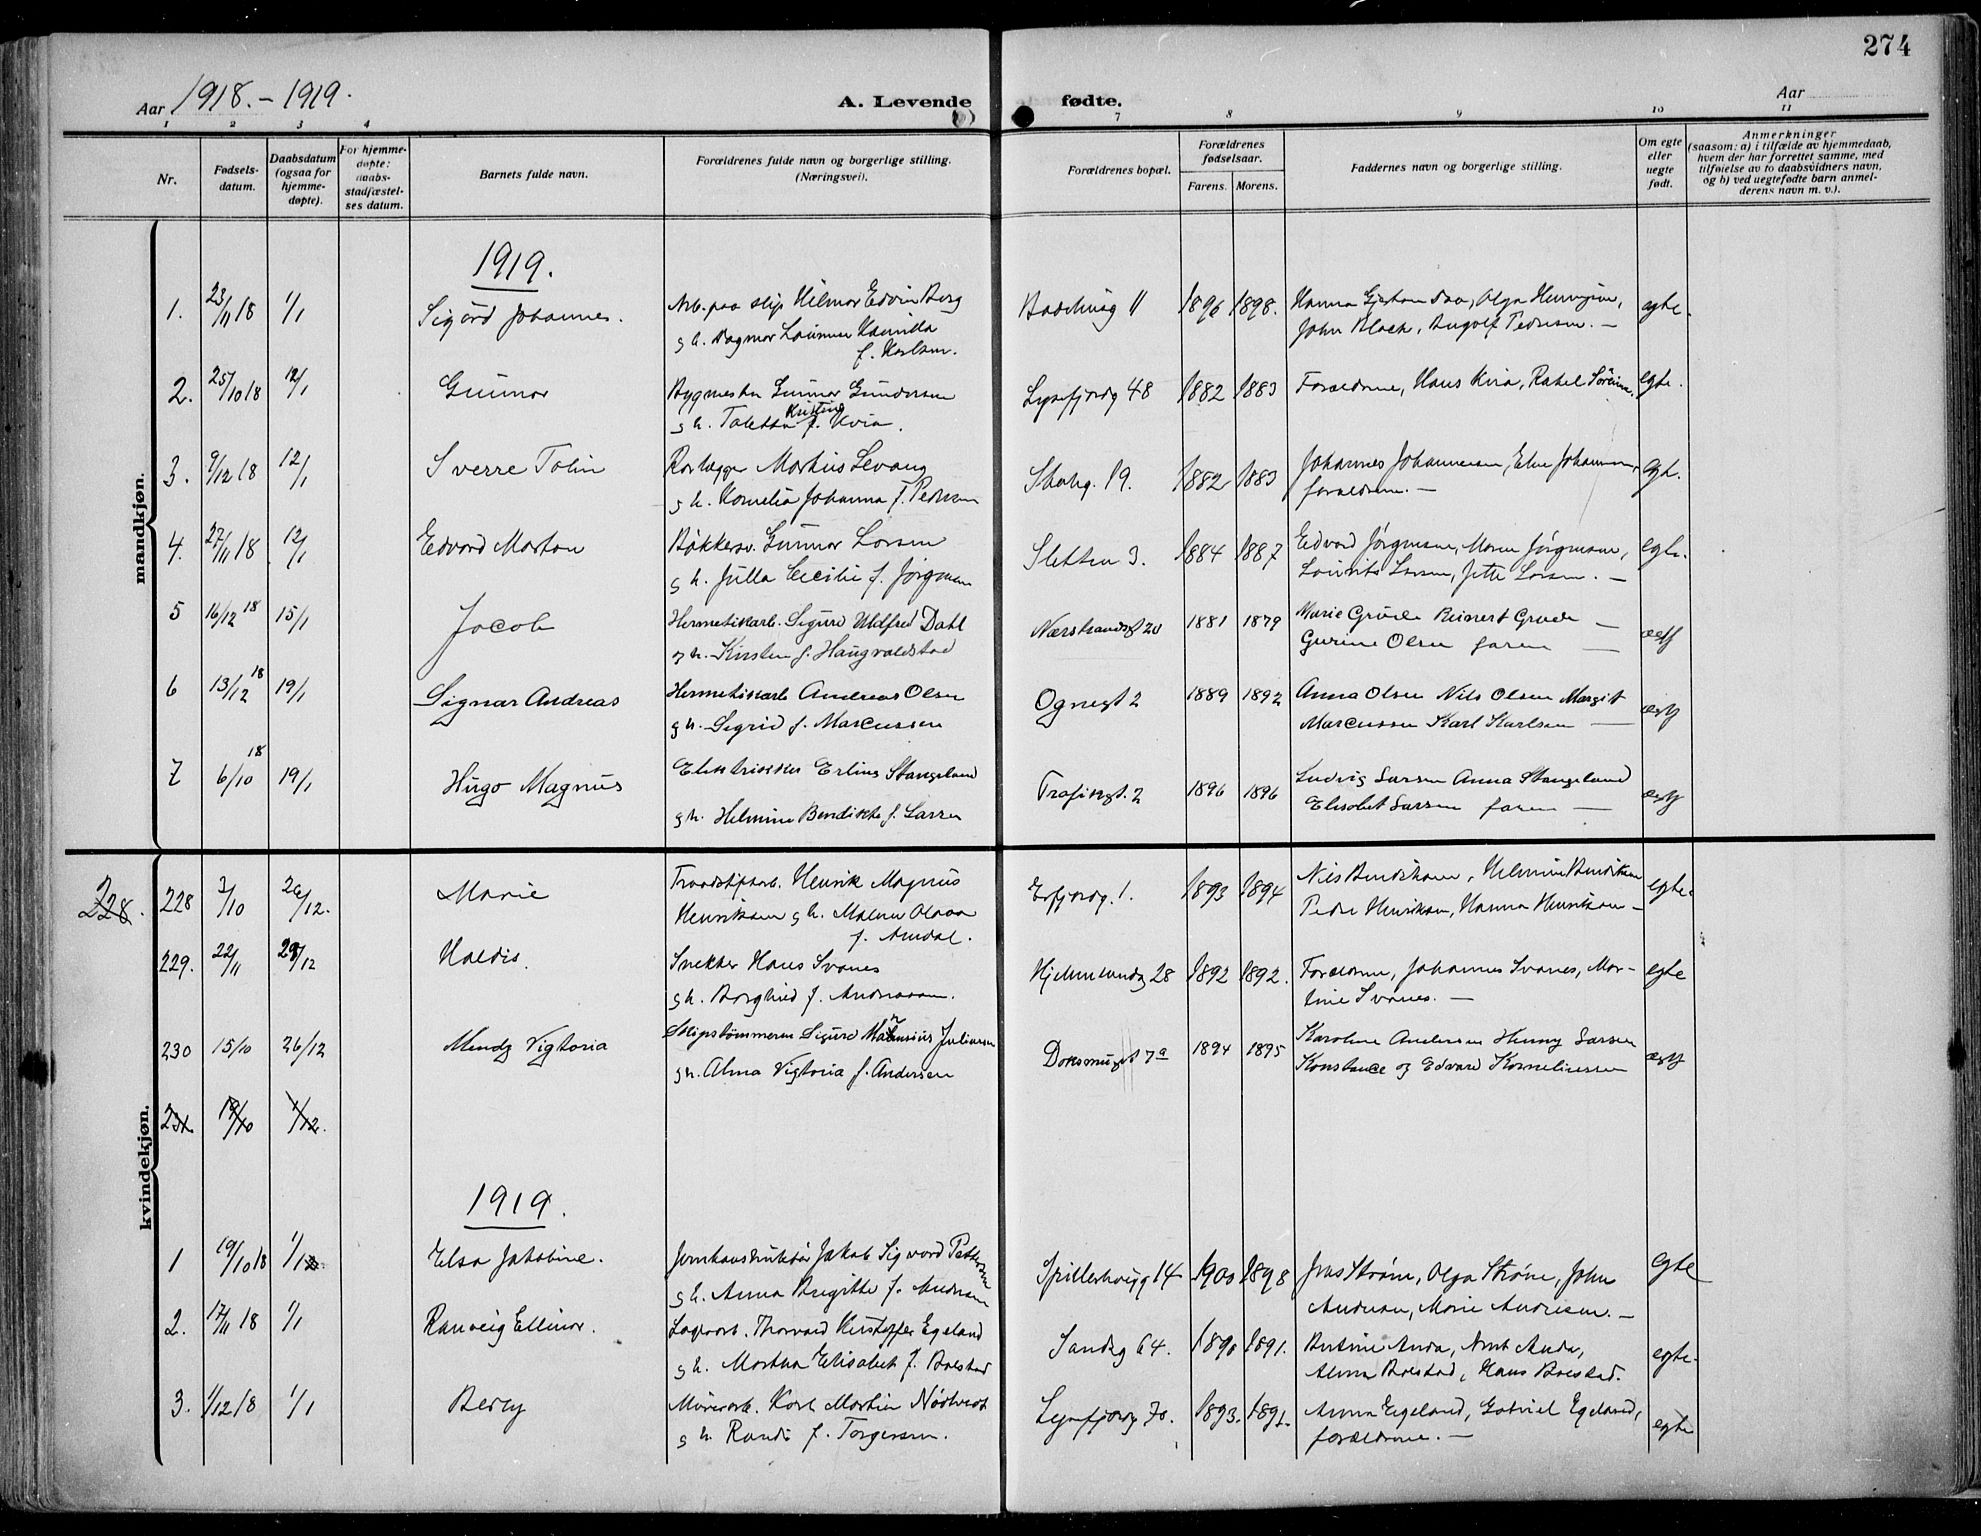 274
Aar 1918. - 1919.
A. Levende fødte.
Aar
1 2 3 4 7 8 9 10 11
Nr.
Fødsels-
datum.
Daabsdatum
(ogsaa for
hjemme-
døpte).
For hjemme-
døpte:
daabs-
stadfæstel-
ses datum.
Barnets fulde navn.
Forældrenes fulde navn og borgerlige stilling.
(Næringsvei).
Forældrenes bopæl.
Forældrenes
fødselsaar.
Farens. Morens.
Faddernes navn og borgerlige stilling.
Om egte
eller
uegte
født.
Anmerkninger
(saasom: a) i tilfælde av hjemmedaab,
hvem der har forrettet samme, med
tilføielse av to daabsvidners navn,
og b) ved uegtefødte barn anmel-
derens navn m. v.).
mandkjøn.
1919.
1. 23/11 18 1/1 Sigurd Johannes. Arb. paa slip Hilmar Edvin Berg 11 1896 1898. John Block, egte.
g h. Dagmar
f. Karlsen.
2. 25/10 18 12/1 Gunnar Bygmester Gunnar Gundersen Lysefjordg 48 1882 1883 Forældrene, Hans Kvia, Rakel egte.
Kristine
g h. Toletta f. Kvia.
3. 9/12 18 12/1 Sverre Tolin Rørlægger Markus Levang 19. 1882 1883 Johannes Johannesen, egte.
g h. Kornelia Johanna f. Pedersen forældrene. —
4. 27/11 18 12/1 Edvard Morton Bøkkersv. Gunnar Larsen Sletten 3. 1884 1887 Edvard Jørgensen, Maren Jørgensen, egte.
g h. Julla Cecilie f. Jørgensen Laurits Larsen, Jette Larsen. —
5 16/12 18 15/1 Jacob Hermetikarb. Sigurd Dahl Nærstrandsgt 20 1881 1879 Marie Grude Reinert Grude —
g h. Kirsten f. Haugvaldstad Gurine Olsen faren —
6 13/12 18 19/1 Signar Andreas Hermetikarb Andreas Olsen Ognegt 2 1889 1892 Anna Olsen Nils Olsen Margit
g h. Sigrid f. Marcussen Marcussen Karl Karlsen —
7 6/10 18 19/1 Hugo Magnus Elektrikker Erling Stangeland Trafikgt. 2 1896 1896 Ludvig Larsen Anna Stangeland
g h. Helmine Bendikte f. Larsen Elisabet Larsen faren —
kvindekjøn.
228. 228 2/10 26/12. Marie Traadstiftarb. Henrik Magnus Erfjordg. 1. 1893 1894 Nils Bendiksen, Helmine Bendiksen egte.
Henriksen g h. Malene Olava Peder Henriksen, Hanna Henriksen —
f. Amdal.
229. 22/11 29/12 Haldis. Snekker Hans Svanes Hjelmelandsg 28 1892 1892. Forældrene, Johannes Svanes, Mar- egte
g h. Borghild f. Andreasen. tine Svanes. —
230 15/10 26/12 Mendz Vigtoria Skipstømmeren Sigurd Juliussen 7a 1894 1895 Karoline Andersen Henny Larsen
g h. Alma Vigtoria f. Andersen Konstance og Edvard Korneliussen
231. 19/10 1/12.
1919.
1 19/10 18 1/1 Elsa Jakobine. Jernkonstruktør Jakob Sigvard Pettersen 14 1900 1898 Jens Strøm, Olga Strøm, John Egte
g h. Anna Birgitte f. Andresen Andresen, Marie Andresen. —
2. 17/11 18 1/1 Ranveig Ellinor. Lagerarb. Thorvald Kristoffer Egeland Sandsg 64. 1890 1891. Bertine Auda, Arnt Auda, egte.
g h. Martha Elisabet f. Bolstad Alma Bolstad, Hans Bolstad.
3. 1/12 18 1/1 Berly Murerarb. Karl Martin Nødtvedt Lysefjordg 70. 1893. 1891. Anna Egeland, Gabriel Egeland, egte
g h. Randi f. Torgersen. forældrene. —